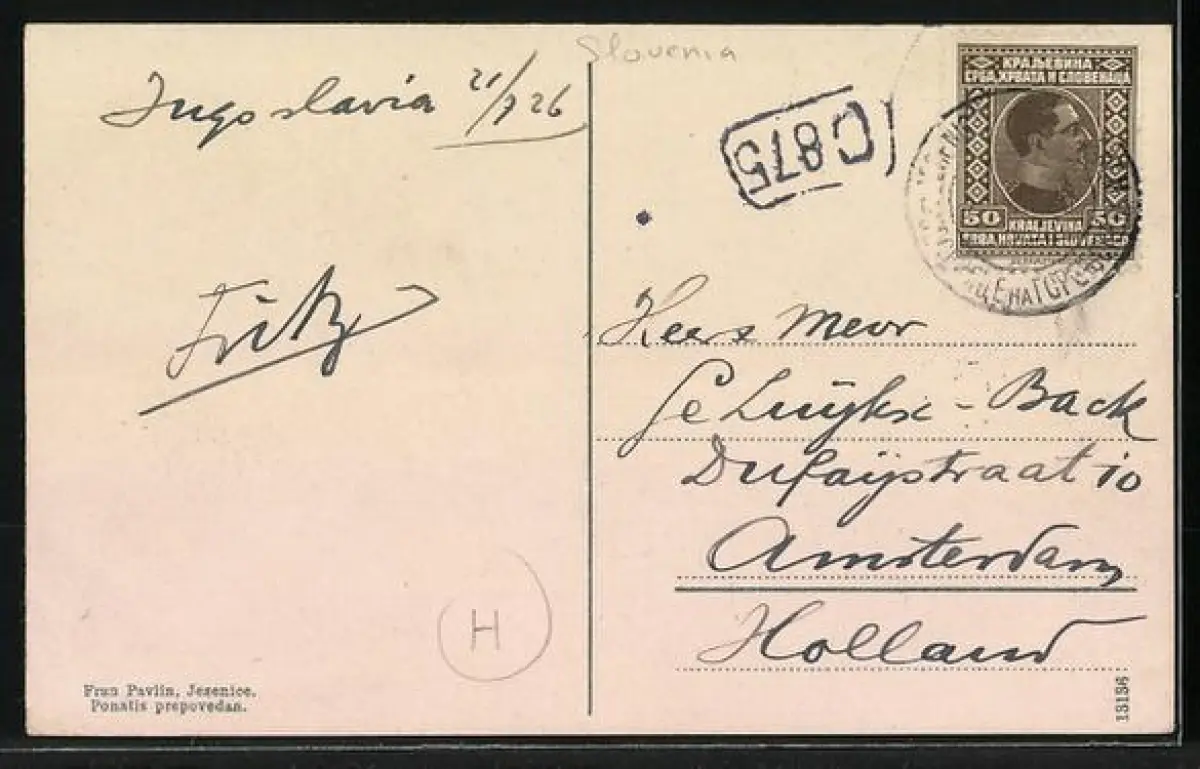 Slovenia
Jugoslavia 21/7 26
Fritz
C875
КРАЉЕВИНА
СРБА, ХРВАТА И СЛОВЕНАЦА
50 50
KRALJEVINA
SRBA, HRVATA I SLOVENACA
НА ГОР
Heer Mevr
Luijkx - Back
Dufaijstraat 10
Amsterdam
Holland
H
Fran Pavlin, Jesenice.
Ponatis prepovedan.
13136